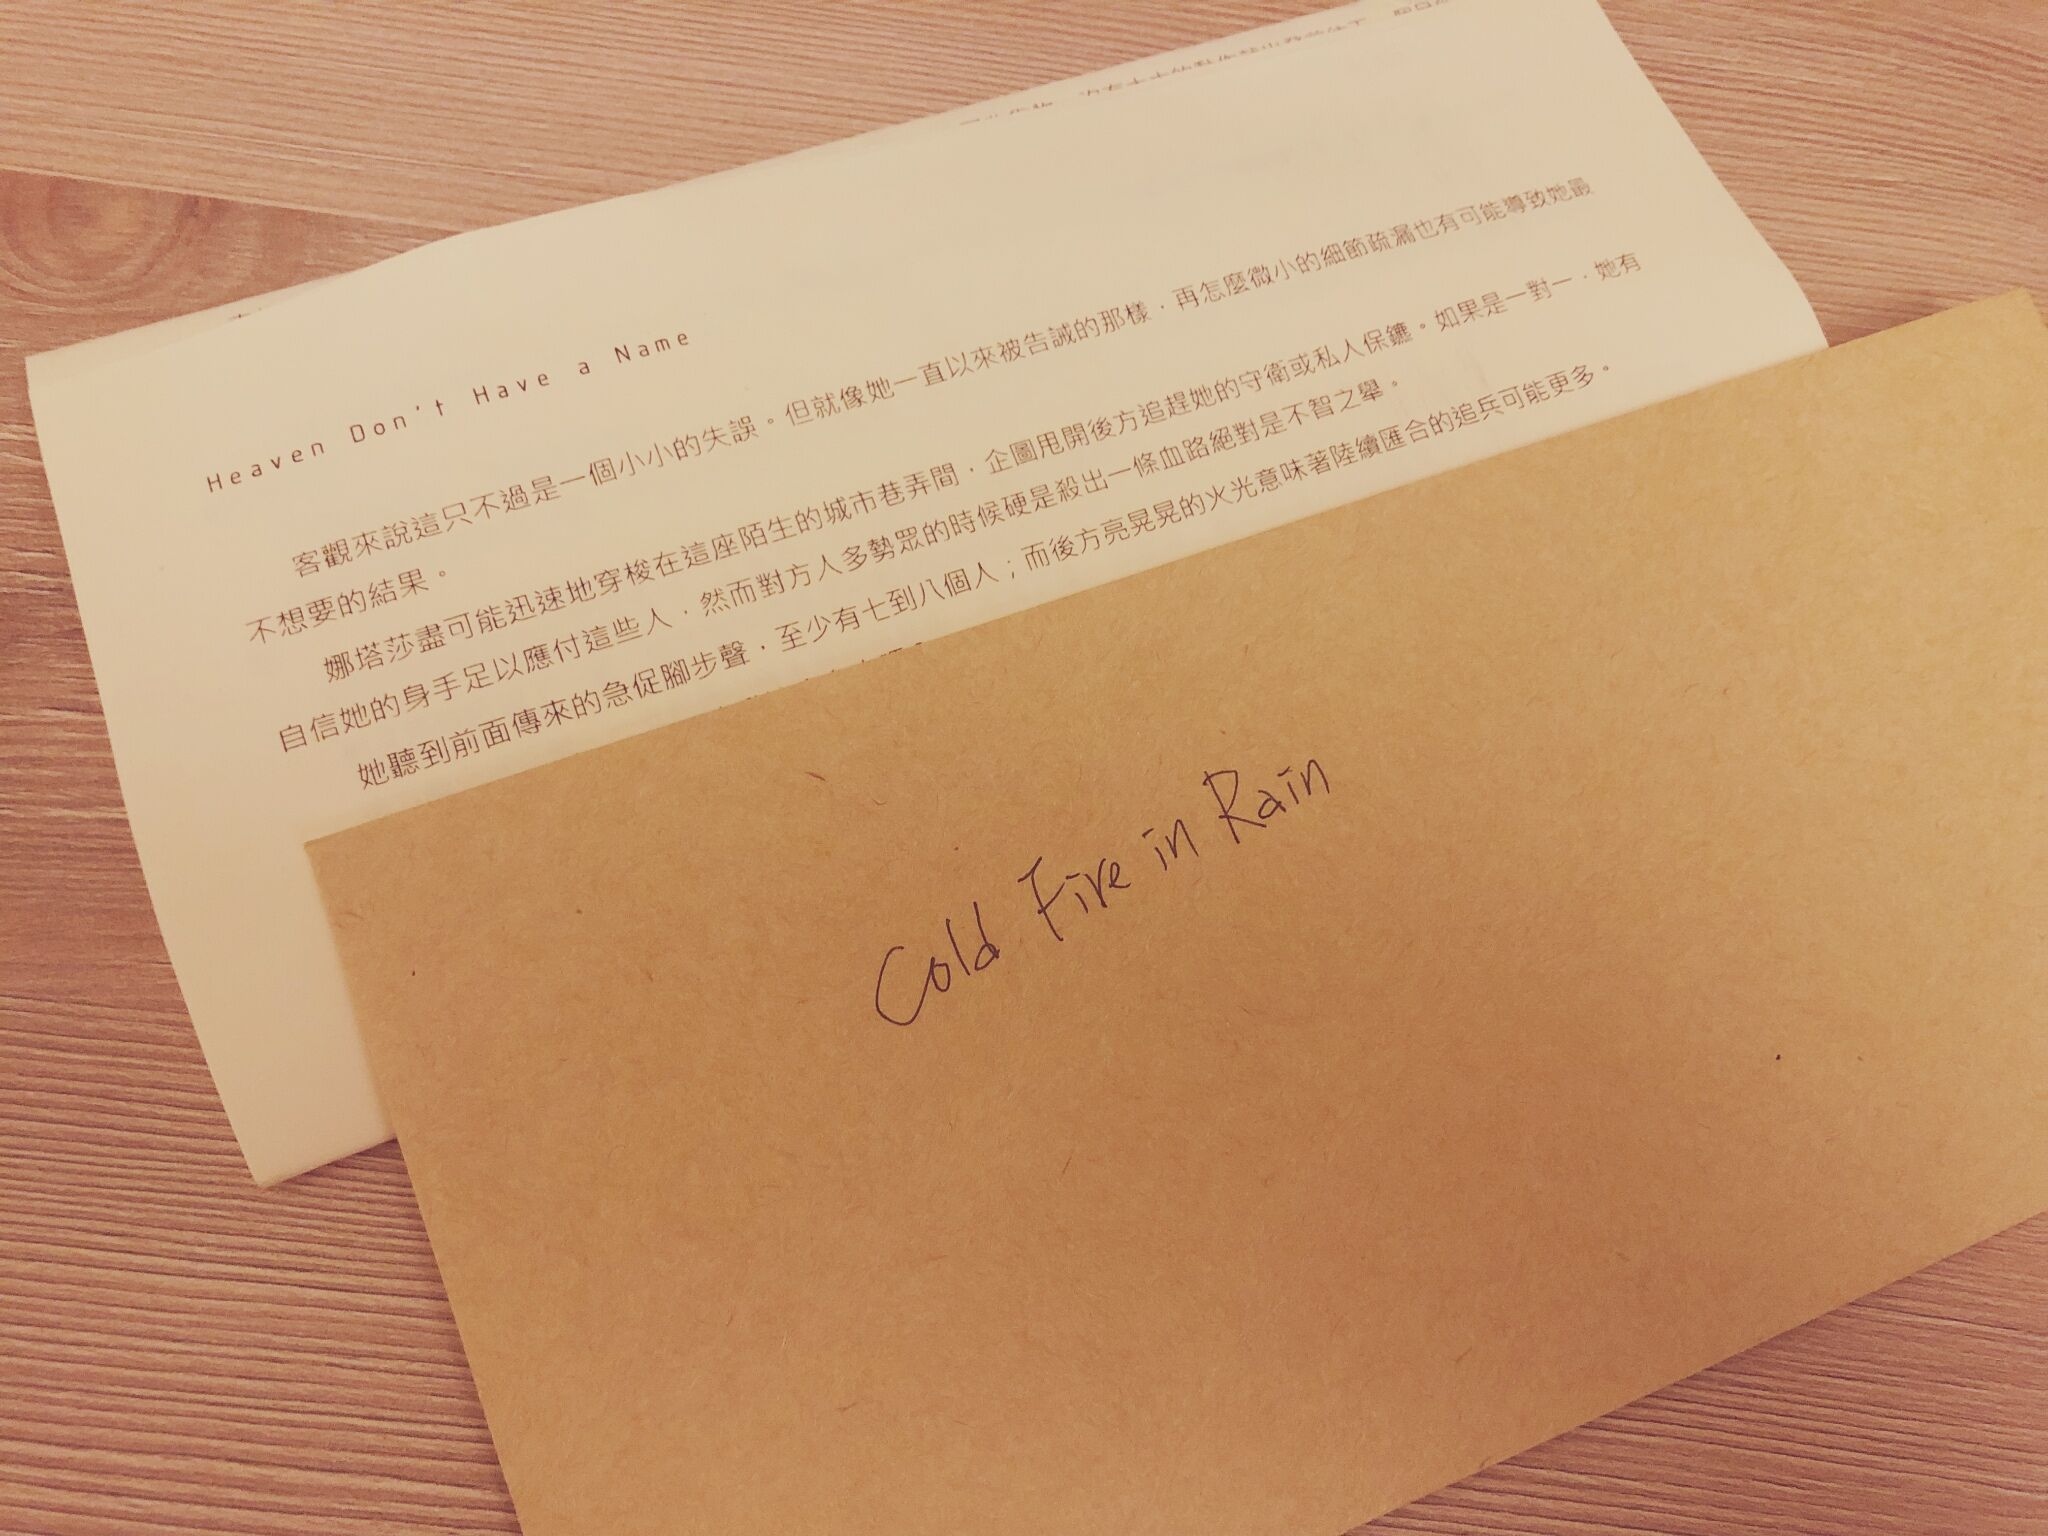 Heaven Don't Have a Name
客觀來說這只不過是一個小小的失誤。但就像她一直以來被告誡的那樣，再怎麼微小的細節疏漏也有可能導致她最
不想要的結果。
娜塔莎盡可能迅速地穿梭在這座陌生的城市巷弄間，企圖甩開後方追趕她的守衛或私人保鑣。如果是一對一，她有
自信她的身手足以應付這些人，然而對方人多勢眾的時候硬是殺出一條血路絕對是不智之舉。
她聽到前面傳來的急促腳步聲，至少有七到八個人；而後方亮晃晃的火光意味著陸續匯合的追兵可能更多。
Cold Fire in Rain